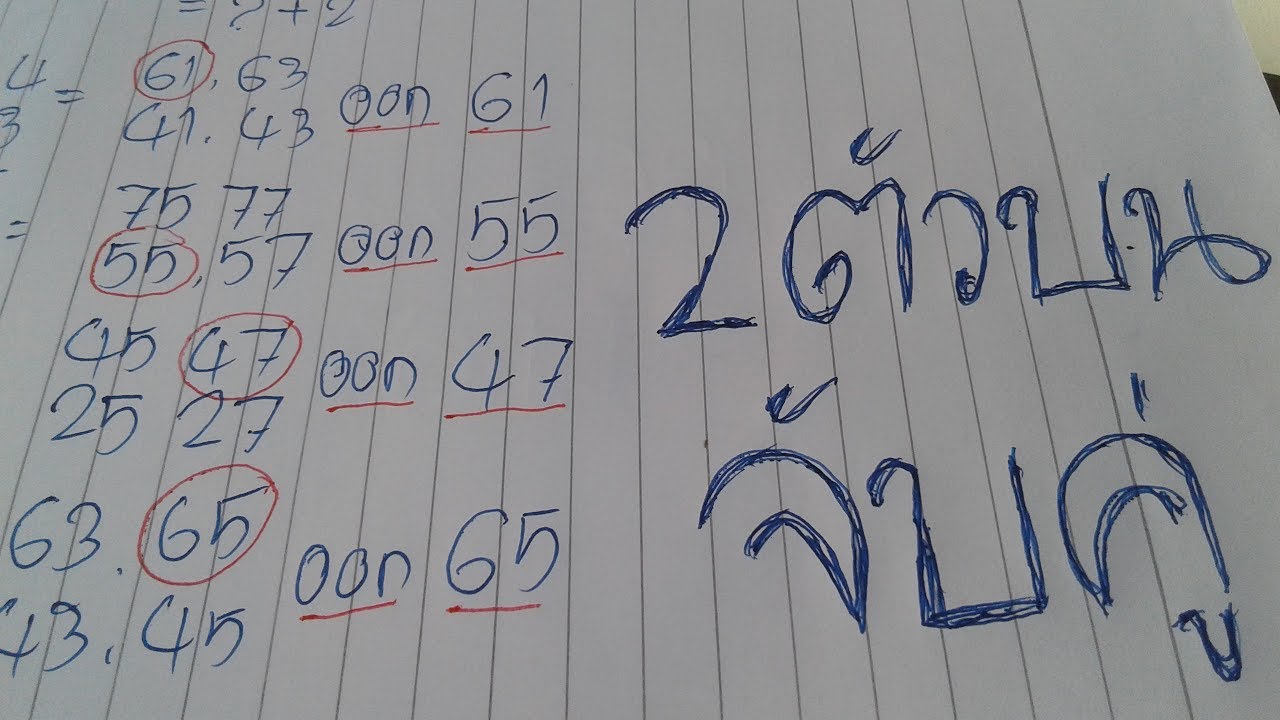 = ? + 2
4 = 61. 63 ออก 61
3 41. 43
= 75 77 ออก 55
55. 57
45 47 ออก 47
25 27
63. 65 ออก 65
43. 45
2 ตัวบน
จับคู่